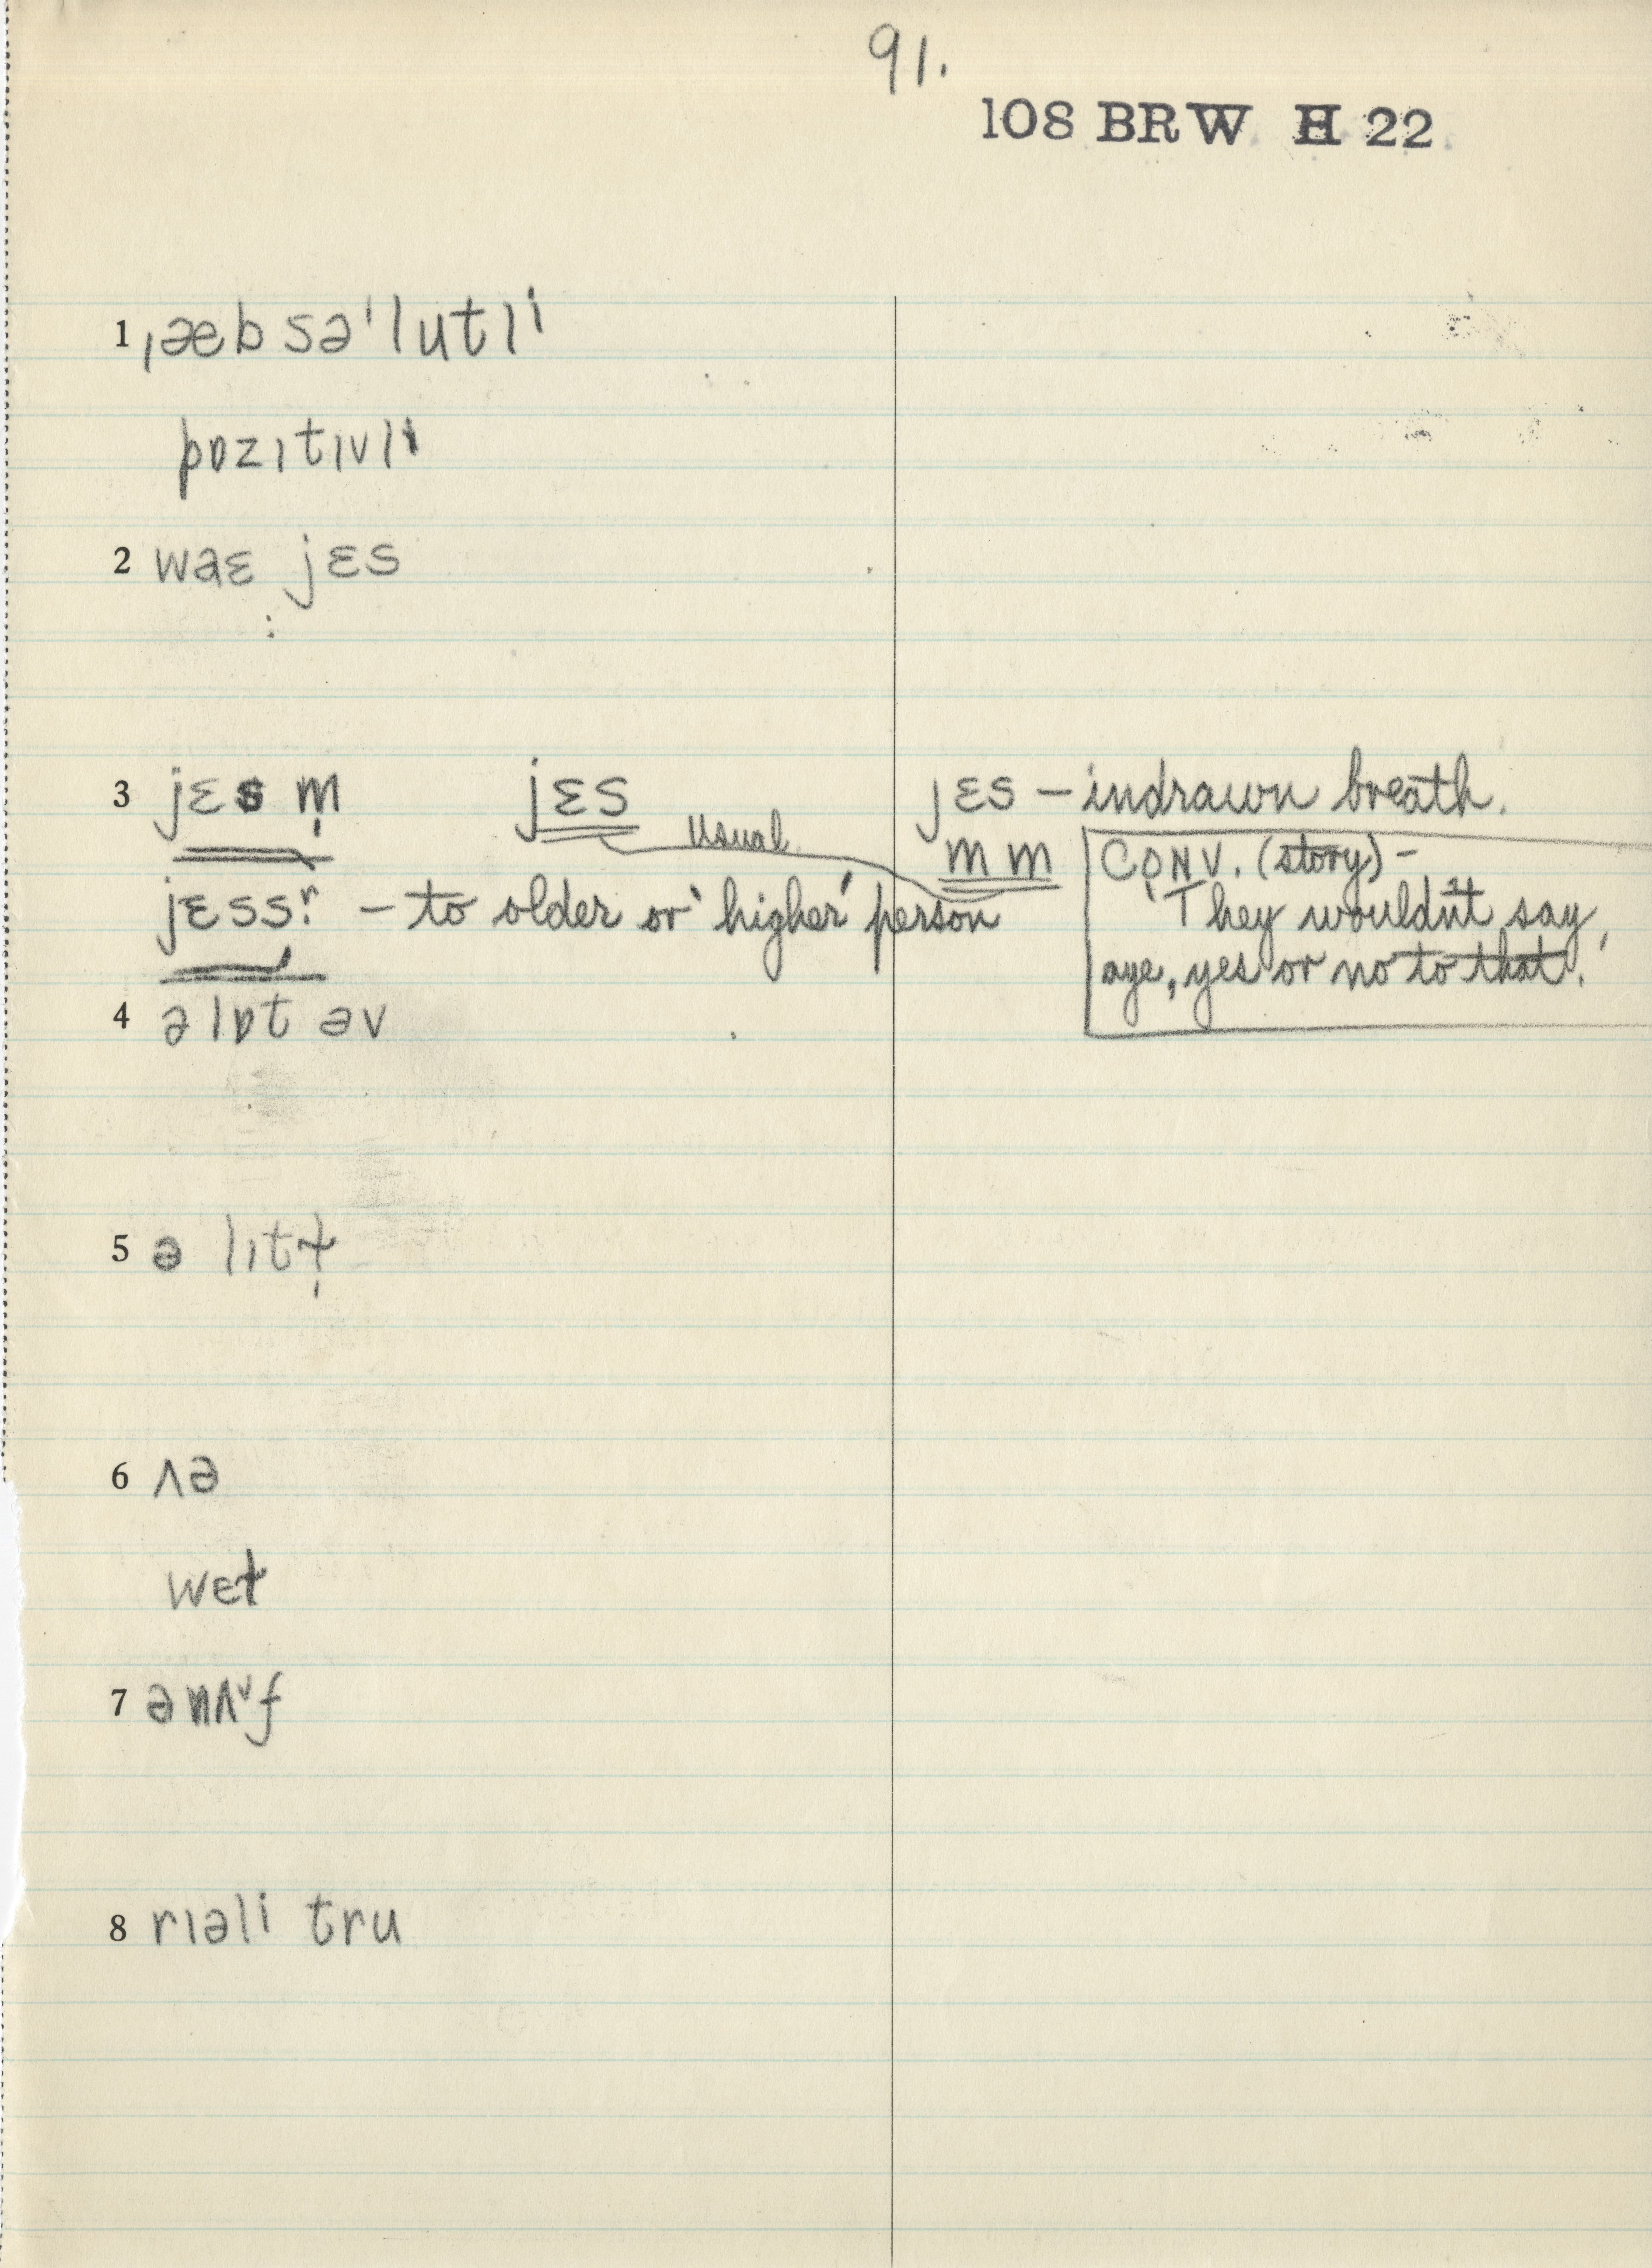 91.
108 BRW H 22
1 ˌæbsəˈlutli
pɒzɪtɪvli
2 waɛ jɛs
3 jɛs m̩ jɛs jɛs – indrawn breath.
usual m m
CONV. (story) –
jɛssr – to older or 'higher' person
'They wouldn't say,
aye, yes or no to that.'
4 ə lɒt əv
5 ə lɪtɫ̩
6 ʌə
wɛɫ
7 ənʌf
8 rɪəli tru